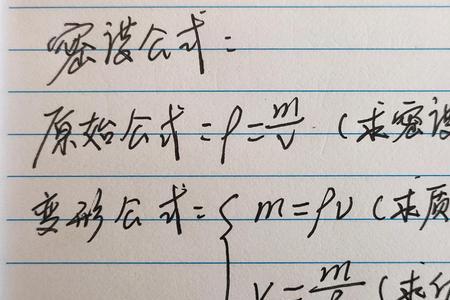 密度公式:
原始公式:ρ=m/v (求密度
变形公式:{ m=ρv (求质
v=m/ρ (求